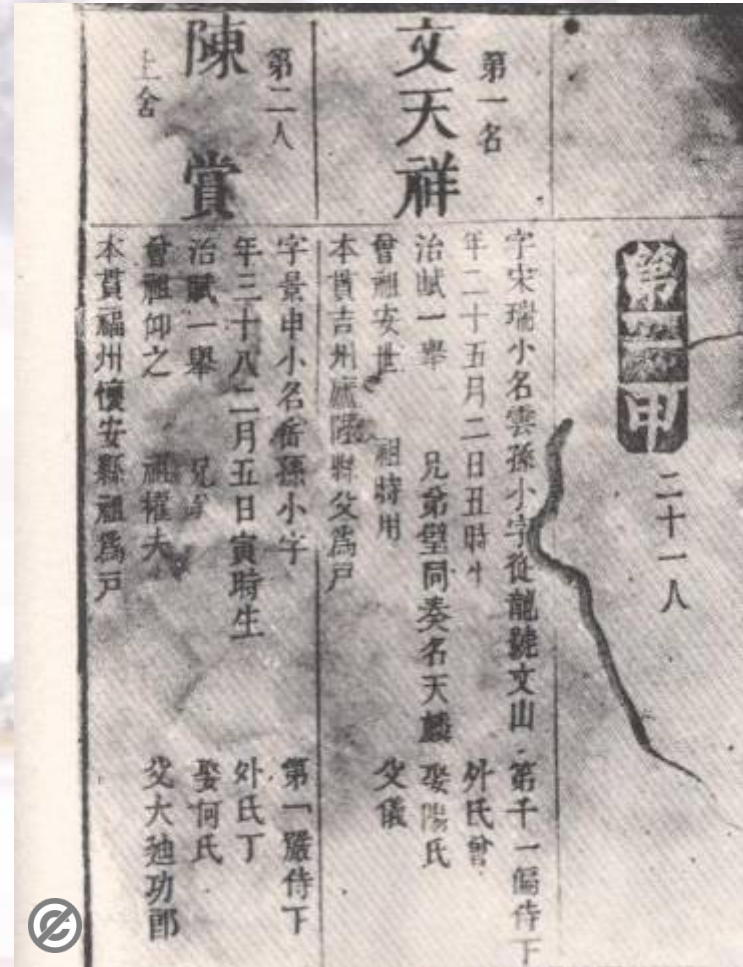 第一甲
二十一人
第一名
文天祥
字宋瑞小名雲孫小字從龍號文山 第千一偏侍下
年二十五月二日丑時生 外氏曾
治賦一舉 兄弟璧同奏名天麟 娶陽氏
曾祖安世 祖時用 父儀
本貫吉州廬陵縣父爲戶
第二人
陳賞
上舍
字景申小名 孫小字 第一嚴侍下
年三十八二月五日寅時生 外氏丁
治賦一舉 兄 娶何氏
曾祖仰之 祖權夫 父大 功郎
本貫福州懷安縣祖爲戶